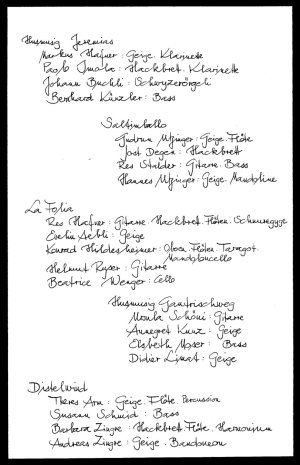 Husmusig Jeremias
Markus Hafner: Geige. Klarinette
Paolo Imola: Hackbrett. Klarinette
Johann Buchli: Schwyzerörgeli
Bernhard Künzler: Bass
Saltimballo
Gudrun Utzinger: Geige. Flöte
Jost Degen: Hackbrett
Res Stalder: Gitarre. Bass
Hannes Utzinger: Geige. Mandoline
La Folia
Res Hafner: Gitarre. Hackbrett. Flöten.
Evelin Aebli: Geige
Konrad Hildesheimer: Oboen. Flöten. Taragot.
Mandoloncello
Helmut Ryser: Gitarre
Beatrice Wenger: Cello
Husmusig Gantrischweg
Moula Schöni: Gitarre
Annegret Kunz: Geige
Elsbeth Moser: Bass
Didier Linat: Geige
Distelwind
Theres Arn: Geige. Flöte. Percussion
Susann Schmid: Bass
Barbara Zingre: Hackbrett. Flöte. Harmonium
Andreas Zingre: Geige. Bandoneon